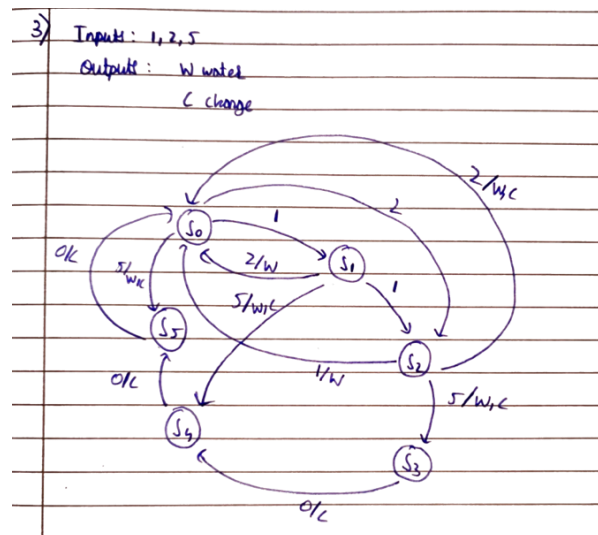 3) Inputs: 1, 2, 5
Outputs: W water
C change
2/W,C
2
1
S0
0/C
5/W,C
2/W
S1
5/W,C
1
S5
S2
1/W
0/C
5/W,C
S4
S3
0/C